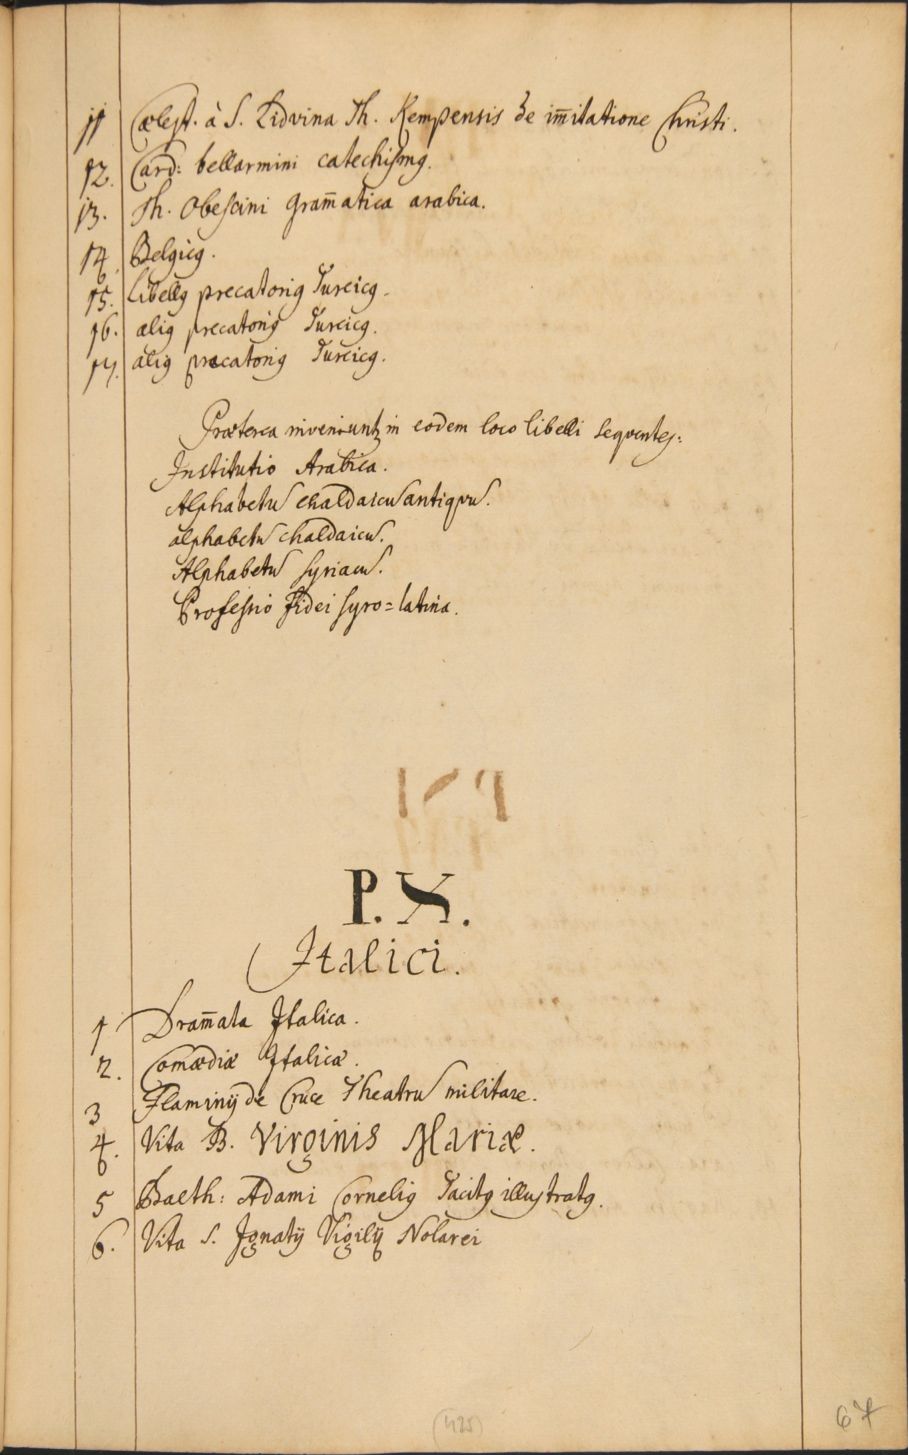 11 Cælest. à S. Lidvina Th. Kempensis de im̄itatione Christi.
12. Card: bellarmini catechismꝰ.
13. Th. Obescini Gram̄atica arabica.
14. Belgicꝰ.
15. libellꝰ precatoriꝰ Turcicꝰ.
16. aliꝰ precatoriꝰ Turcicꝰ.
17. aliꝰ precatoriꝰ Turcicꝰ.
Præterea inveniunt in eodem loco libelli sequentes:
Institutio Arabica.
Alphabetū chaldaicū antiquū.
alphabetū chaldaicū.
Alphabetū syriacū.
Professio fidei syro=latina.
P. X.
Italici.
1 Dram̄ata Italica.
2. Comœdiæ Italicæ.
3 Flaminij de Cruce Theatrū militare.
4. Vita B. Virginis Mariæ.
5 Balth: Adami Corneliꝰ Tacitꝰ illustratꝰ.
6. Vita S. Ignatij Vigilij Nolarci
(425)
67